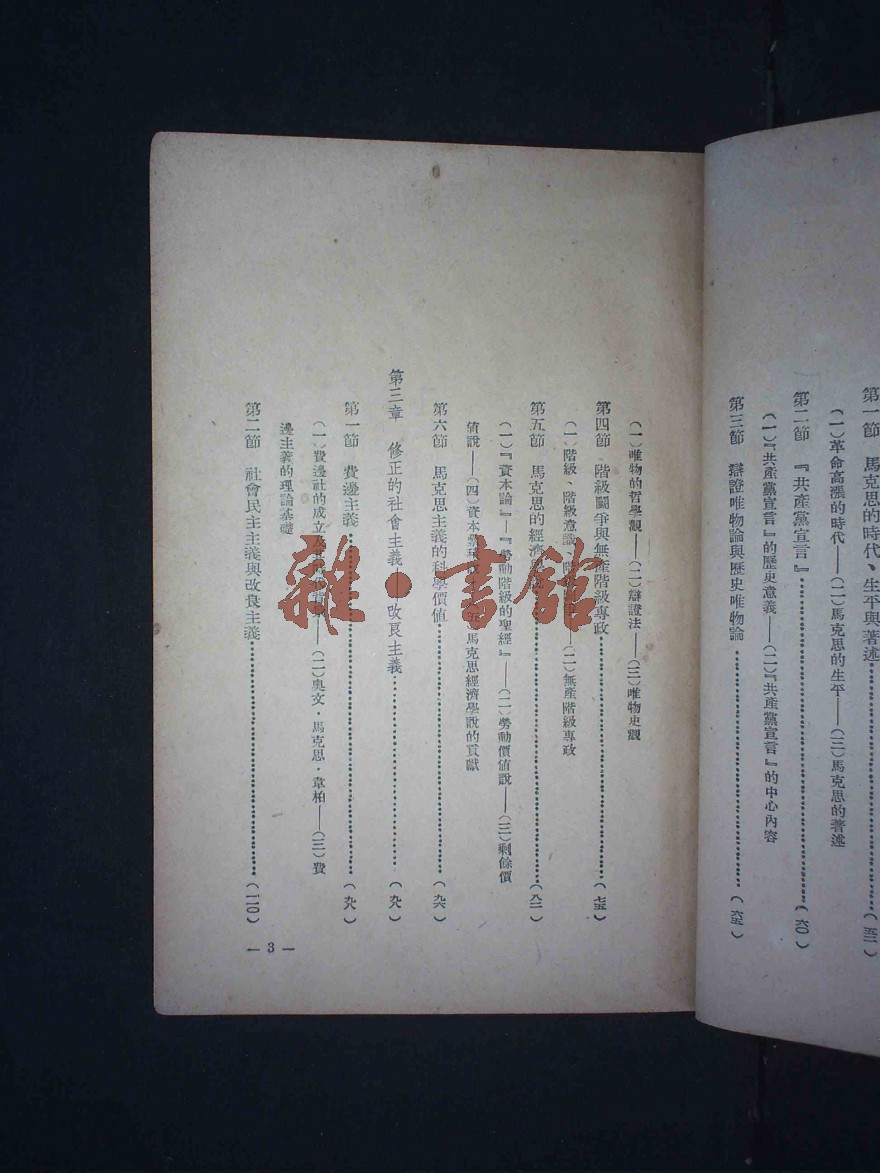 第一節　馬克思的時代、生平與著述……(五二)
(一)革命高漲的時代——(二)馬克思的生平——(三)馬克思的著述
第二節　『共產黨宣言』……(六〇)
(一)『共產黨宣言』的歷史意義——(二)『共產黨宣言』的中心內容
第三節　辯證唯物論與歷史唯物論……(六五)
(一)唯物的哲學觀——(二)辯證法——(三)唯物史觀
第四節　階級鬭爭與無產階級專政……(七五)
(一)階級、階級意識、階級——(二)無產階級專政
第五節　馬克思的經濟學說……(八二)
(一)『資本論』——『勞動階級的聖經』——(二)勞動價值說——(三)剩餘價
值說——(四)資本——(五)馬克思經濟學說的貢獻
第六節　馬克思主義的科學價值……(九六)
第三章　修正的社會主義——改良主義……(九八)
第一節　費邊主義……(九八)
(一)費邊社的成立及其——(二)奧文・馬克思・韋柏——(三)費
邊主義的理論基礎
第二節　社會民主主義與改良主義……(一一〇)
— 3 —
雜・書館